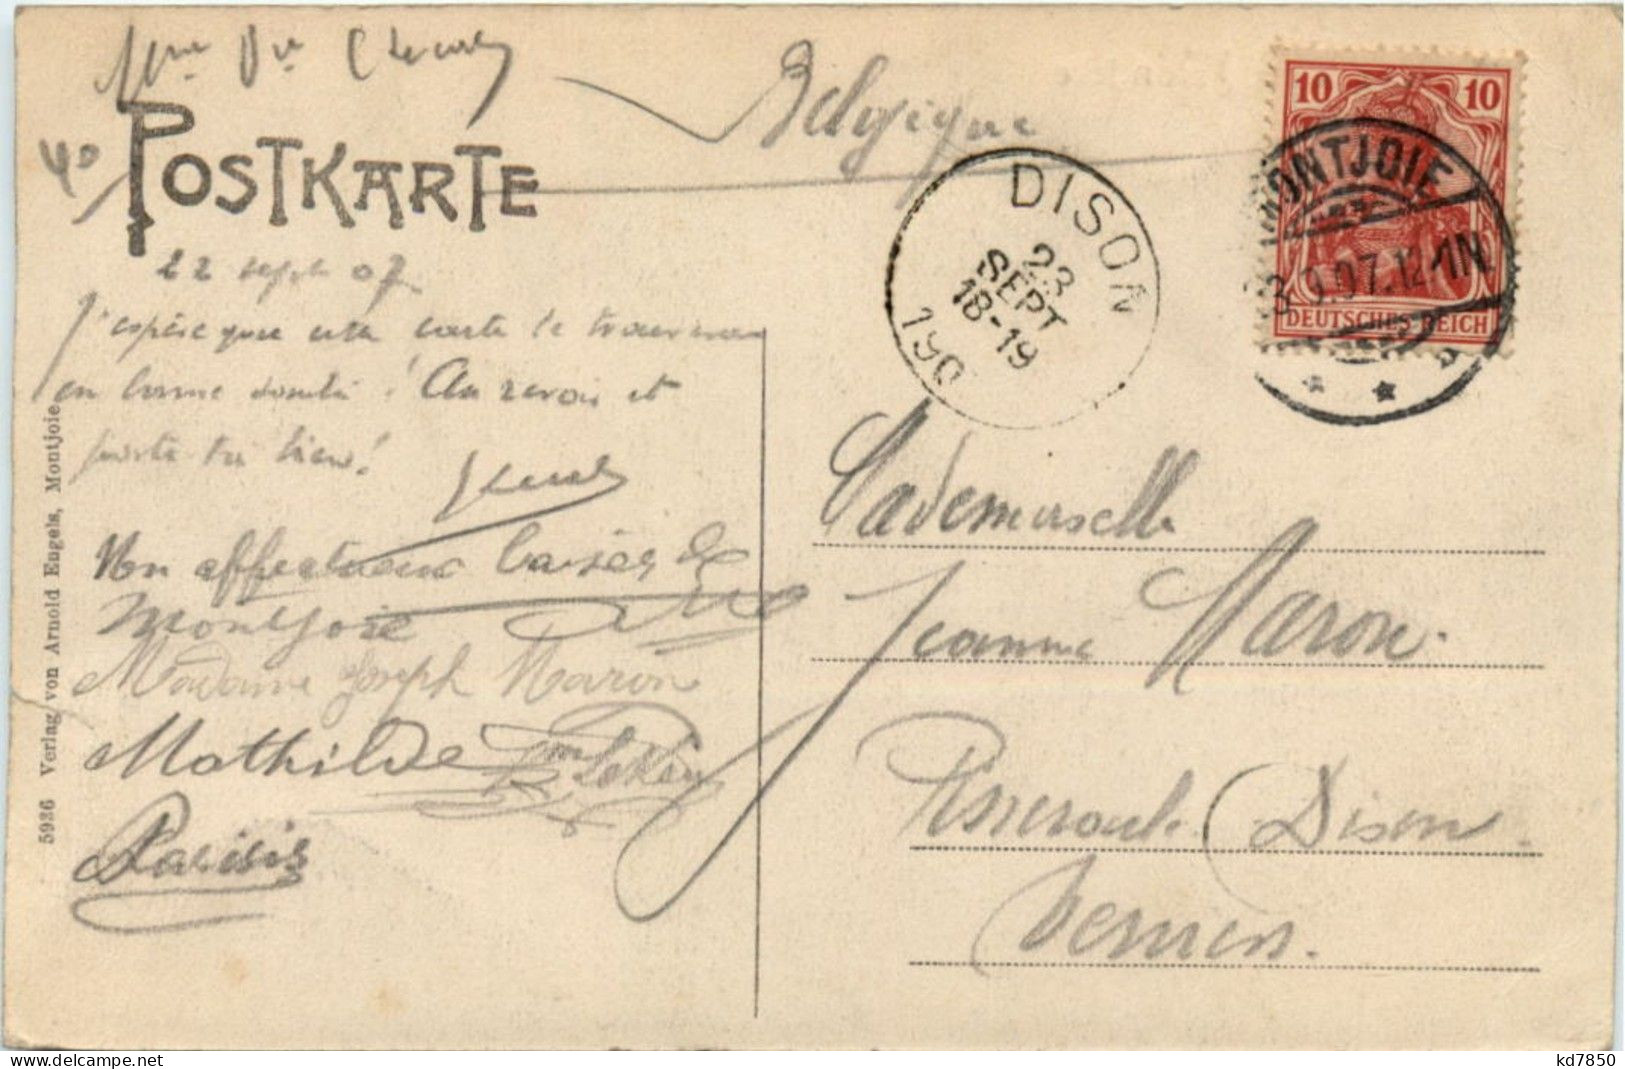 Mme Vve
Belgique
POSTKARTE
22 sept 07
J'espère que cette carte te trouvera
en bonne santé! Au revoir et
porte toi bien!
Mon affectueux baiser de
Montjoie
Madame Joseph Maron
Mathilde
5936 Verlag von Arnold Engels, Montjoie
DISON
23
SEPT
18-19
190
10 10
DEUTSCHES REICH
MONTJOIE
3.9.07.12-1N
Mademoiselle
Jeanne Maron.
Dison.
Verviers.
www.delcampe.net
kd7850